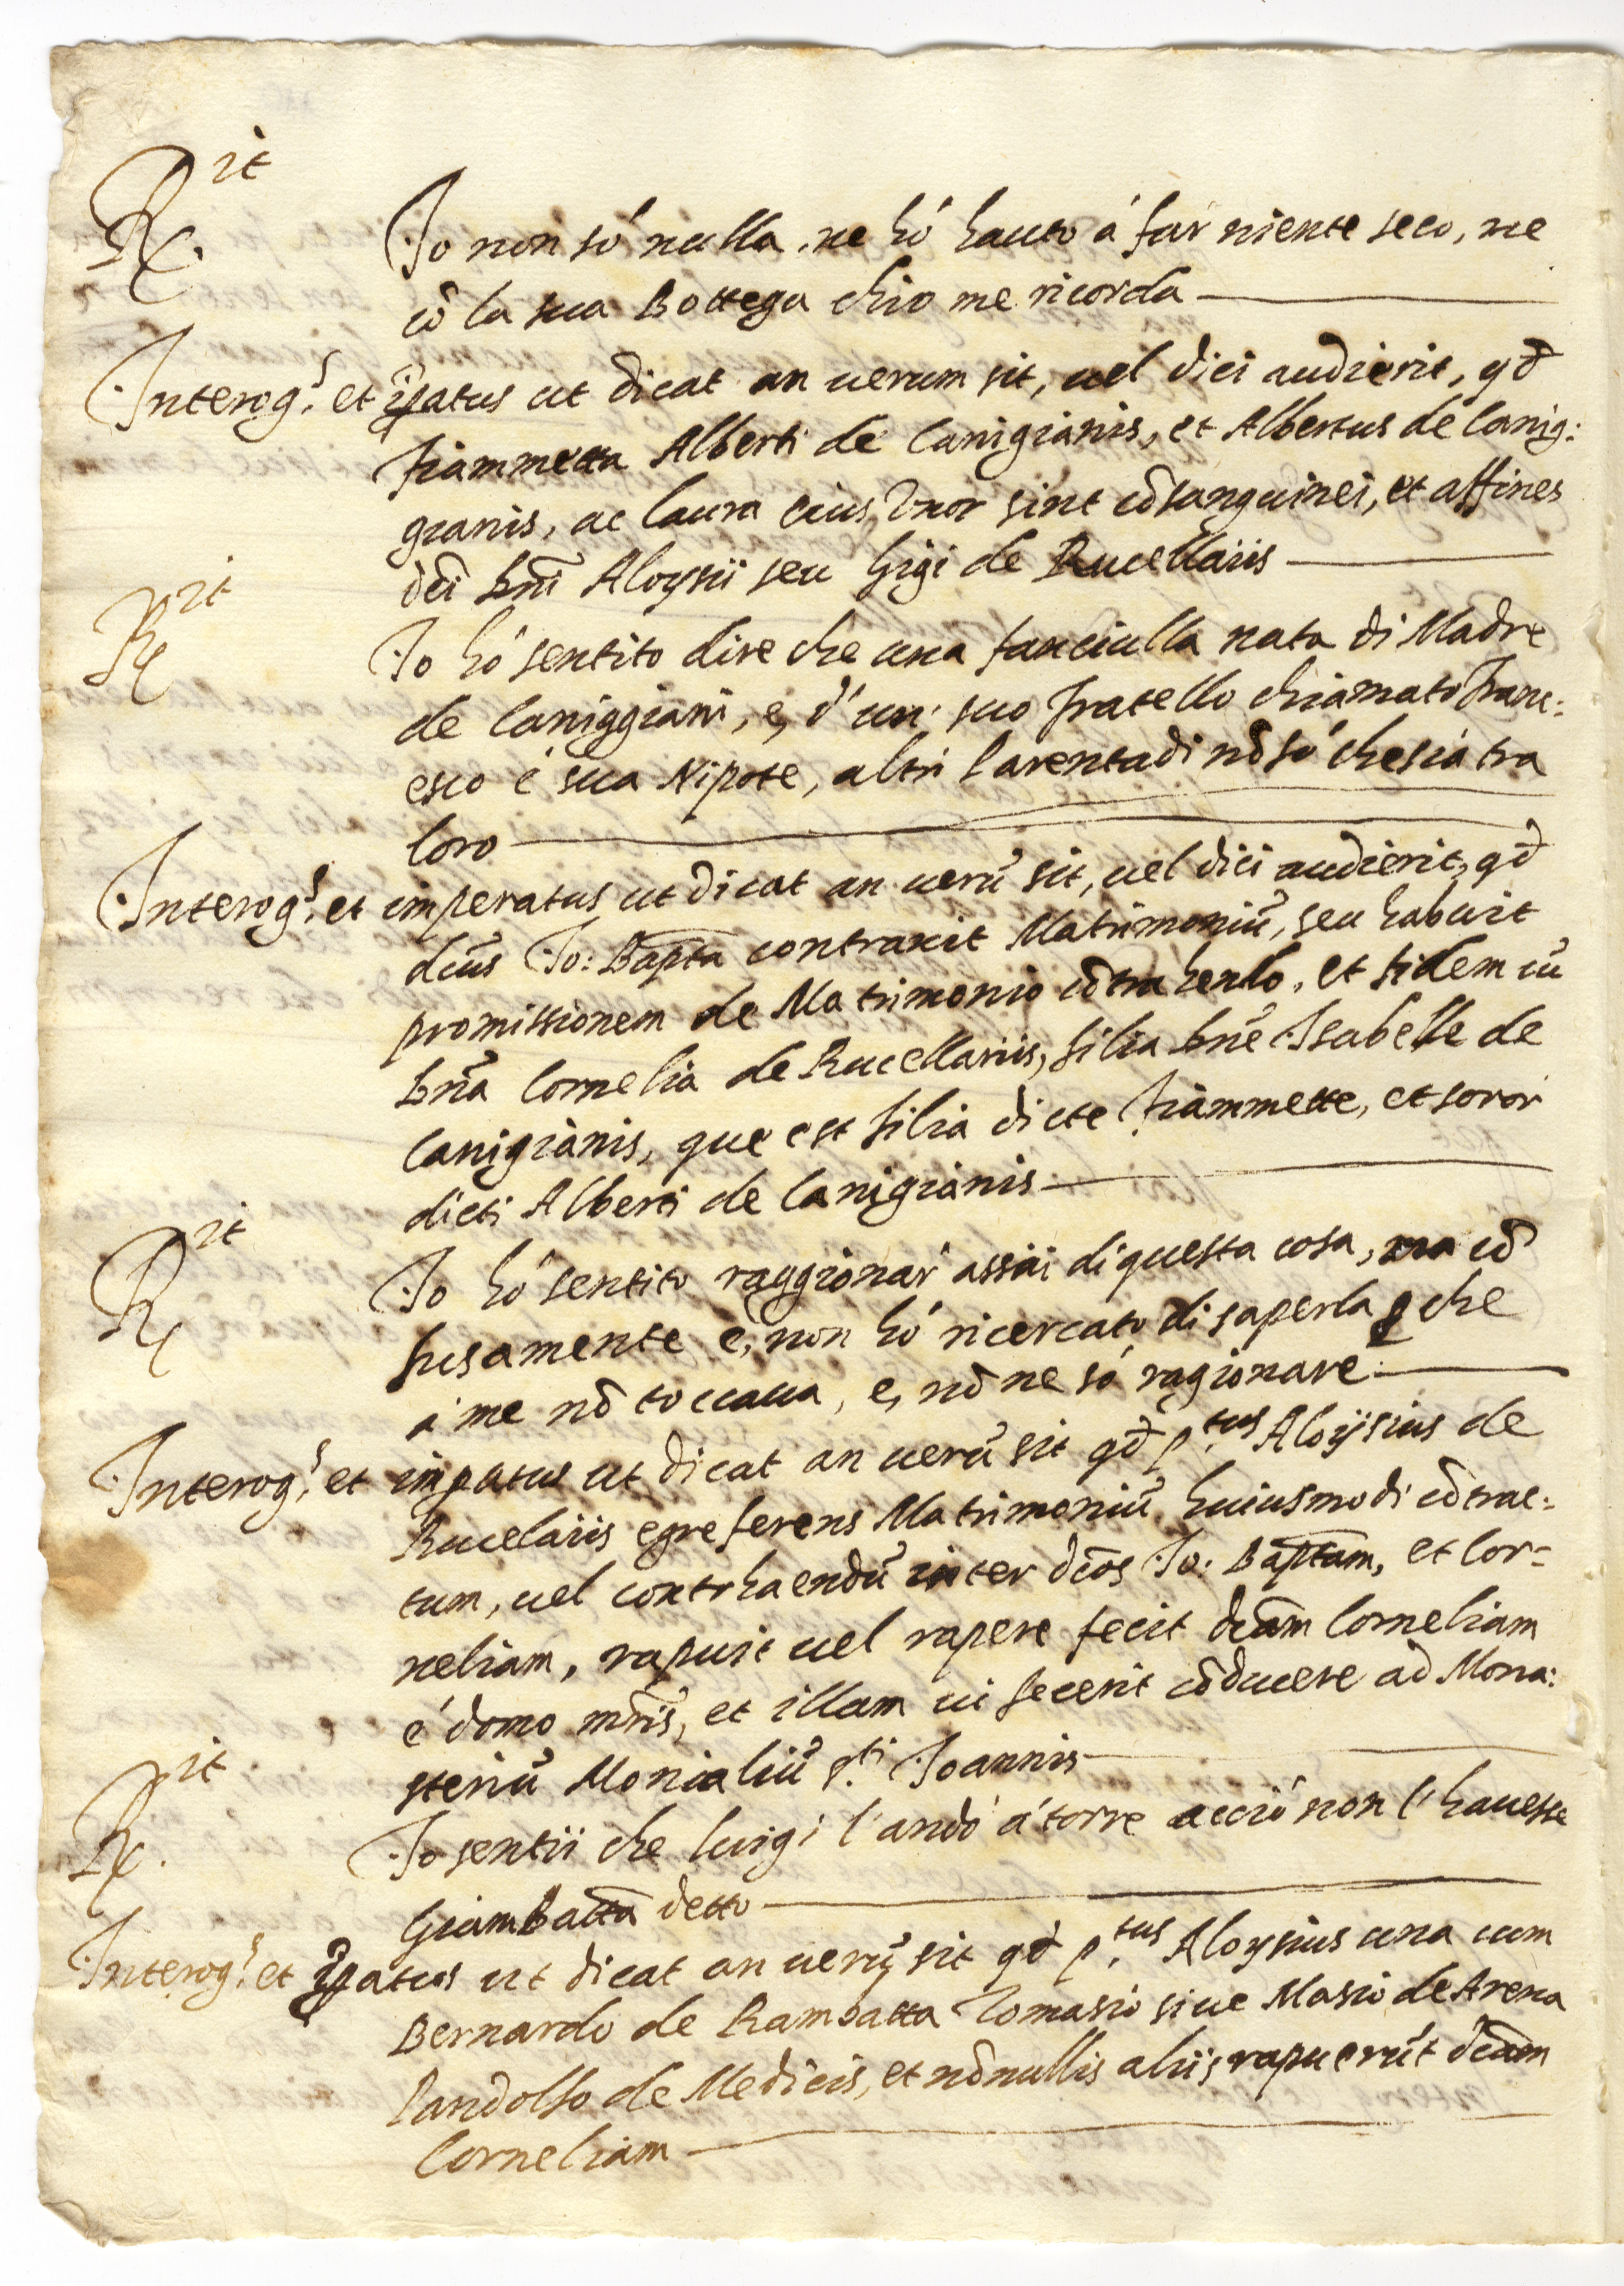 R.it Io non só nulla, ne hó hauto á far niente seco, ne
cõ la sua Bottega chio me ricorda
Interog.s et ip̃atus ut dicat an uerum sit, uel dici audierit, qđ
Fiammetta Alberti de Canigianis, et Albertus de Canig:
gianis, ac Laura eius Vxor sint cõsanguinei, et affines
dc̃i dñi Aloysii seu Gigi de Rucellaiis
R.it Io hó sentito dire che una fanciulla nata di Madre
de Caniggiani, e, d'un' suo fratello chiamato Franc:
esco é sua Nipote, altri Parentadi nõ só che sia tra
loro
Interog.s et imperatus ut dicat an uerũ sit, uel dici audierit, qđ
dc̃us Io: Bap̃ta contraxit Matrimoniũ, seu habuit
promissionem de Matrimonio cõtrahendo, et fidem cũ
dñã Cornelia de Rucellariis, filia dñẽ Isabelle de
Canigianis, que est filia dicte Fiammette, et soror
dicti Alberti de Canigianis
R.it Io hó sentito raggionar' assai di questa cosa, ma cõ
fusamente e, non hó ricercato di saperla ꝑche
á me nõ toccaua, e, nõ ne só ragionare
Interog.s et imp̃atus ut dicat an uerũ sit qđ p.tus Aloijsius de
Rucelaiis egre ferens Matrimoniũ huiusmodi cõtrac:
tum, uel contrhaendũ inter dc̃os Io: Bap̃tam, et Cor=
neliam, rapuit uel rapere fecit dc̃am Corneliam
é domo mr̃is, et illam ui fecerit cõducere ad Mona:
steriũ Monialiũ S.ti Joannis
R.it Io sentii che Luigi l'andó á torre acció non l'hauesse
Giambatt̃a detto
Interog.s et ip̃atus ut dicat an uerũ sit qđ p.tus Aloysius una cum
Bernardo de Rambatta Tomasio siue Masio de Arena
Pandolfo de Medicis, et nõnullis aliis rapuerũt dc̃am
Corneliam